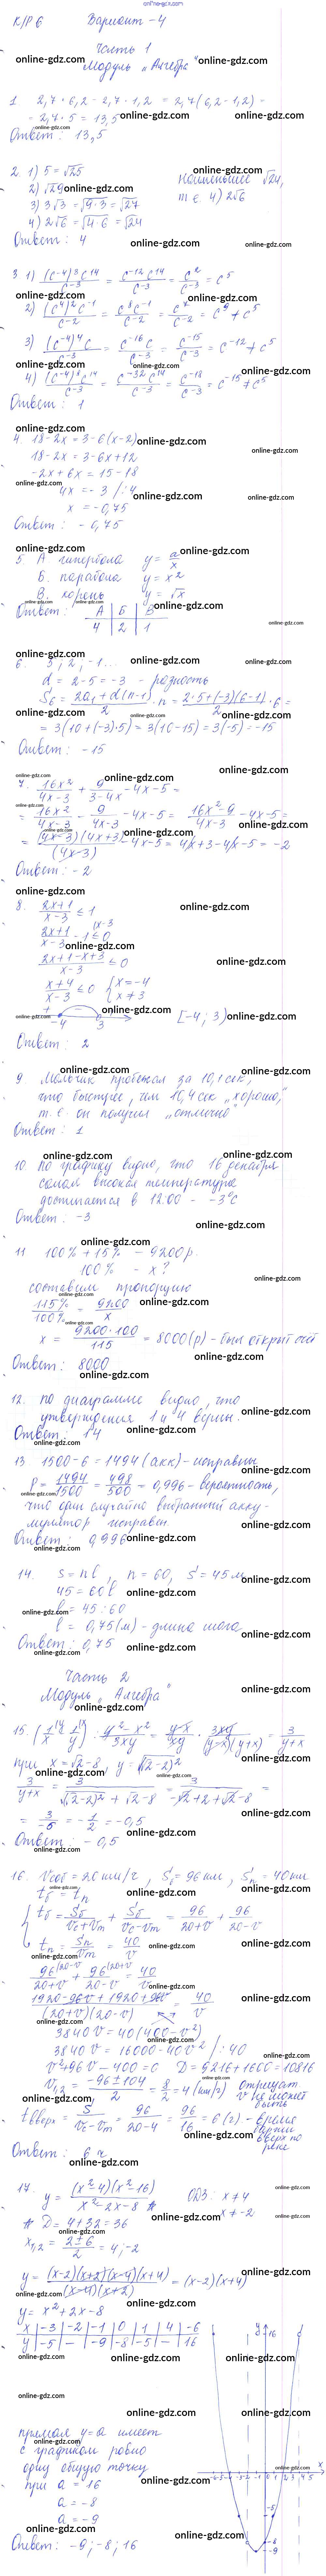 online-gdz.com
К/Р 6 Вариант - 4
Часть 1
Модуль „Алгебра"
1. 2,7 · 6,2 - 2,7 · 1,2 = 2,7(6,2 - 1,2) =
= 2,7 · 5 = 13,5
Ответ: 13,5
2. 1) 5 = √25
2) √29
3) 3√3 = √9·3 = √27
4) 2√6 = √4·6 = √24
Наименьшее √24,
т.е. 4) 2√6
Ответ: 4
Ответ: 1
4. 18 - 2x = 3 - 6(x - 2)
18 - 2x = 3 - 6x + 12
-2x + 6x = 15 - 18
4x = -3 /:4
x = -0,75
Ответ: -0,75
5. А. гипербола y = a/x
Б. парабола y = x²
В. корень y = √x
Ответ: А | Б | В
4 | 2 | 1
6. 5; 2; -1...
d = 2 - 5 = -3 - разность
S₆ = (2a₁ + d(n-1))/2 · n = (2·5 + (-3)(6-1))/2 · 6 =
= 3(10 + (-3)·5) = 3(10 - 15) = 3(-5) = -15
Ответ: -15
7. 16x²/(4x-3) + 9/(3-4x) - 4x - 5 =
= 16x²/(4x-3) - 9/(4x-3) - 4x - 5 = (16x²-9)/(4x-3) - 4x - 5 =
= (4x-3)(4x+3)/(4x-3) - 4x - 5 = 4x + 3 - 4x - 5 = -2
Ответ: -2
8. (2x+1)/(x-3) ≤ 1
(2x+1)/(x-3) - 1 ≤ 0
(2x+1-x+3)/(x-3) ≤ 0
(x+4)/(x-3) ≤ 0 { x = -4
x ≠ 3
-4 3 [-4; 3)
Ответ: 2
9 Мальчик пробежал за 10,1 сек,
что быстрее, чем 10,4 сек „хорошо,"
т.е. он получил „отлично"
Ответ: 1
10 По графику видно, что 16 декабря
самая высокая температура
достигается в 12:00 - -3°C
Ответ: -3
11 100% + 15% - 9200р.
100% - x?
составим пропорцию
115%/100% = 9200/x
x = 9200·100/115 = 8000(р) - был открыт счёт
Ответ: 8000
12. по диаграмме видно, что
утверждения 1 и 4 верны.
Ответ: 14
13 1500 - 6 = 1494 (акк) - исправны
P = 1494/1500 = 498/500 = 0,996 - вероятность,
что один случайно выбранный акку-
мулятор исправен.
Ответ: 0,996
14. s = nl, n = 60, s = 45 м
45 = 60l
l = 45 : 60
l = 0,75(м) - длина шага
Ответ: 0,75
Часть 2
Модуль „Алгебра"
15 (1/x - 1/y) : (y²-x²)/3xy = (y-x)/xy · 3xy/((y-x)(y+x)) = 3/(y+x)
= 3/-6 = -1/2 = -0,5
Ответ: -0,5
16. Vсоб = 20 км/ч, Sб = 96 км, Sп = 40 км
tб = tп
tб = Sб/(Vc+Vт) + Sб/(Vc-Vт) = 96/(20+v) + 96/(20-v)
tп = Sп/Vт = 40/v
96/(20+v) + 96/(20-v) = 40/v
(1920 - 96v + 1920 + 96v)/((20+v)(20-v)) = 40/v
3840v = 40(400 - v²)
3840v = 16000 - 40v² /:40
v² + 96v - 400 = 0 D = 9216 + 1600 = 10816
v₁,₂ = (-96 ± 104)/2 = 8/2 = 4 (км/ч)
отрицат.
v не может
быть
tвверх = S/(Vc-Vт) = 96/(20-4) = 96/16 = 6(ч) - время
вверх по
реке
Ответ: 6 ч
17. y = (x²-4)(x²-16)/(x²-2x-8) ОДЗ: x ≠ 4
x ≠ -2
D = 4 + 32 = 36
x₁,₂ = (2±6)/2 = 4; -2
y = (x-2)(x+2)(x-4)(x+4)/((x-4)(x+2)) = (x-2)(x+4)
y = x² + 2x - 8
x | -3 | -2 | -1 | 0 | 1 | 4 | -6
y | -5 | — | -9 | -8 | -5 | — | 16
прямая y = a имеет
с графиком ровно
одну общую точку
при a = 16
a = -8
a = -9
Ответ: -9; -8; 16